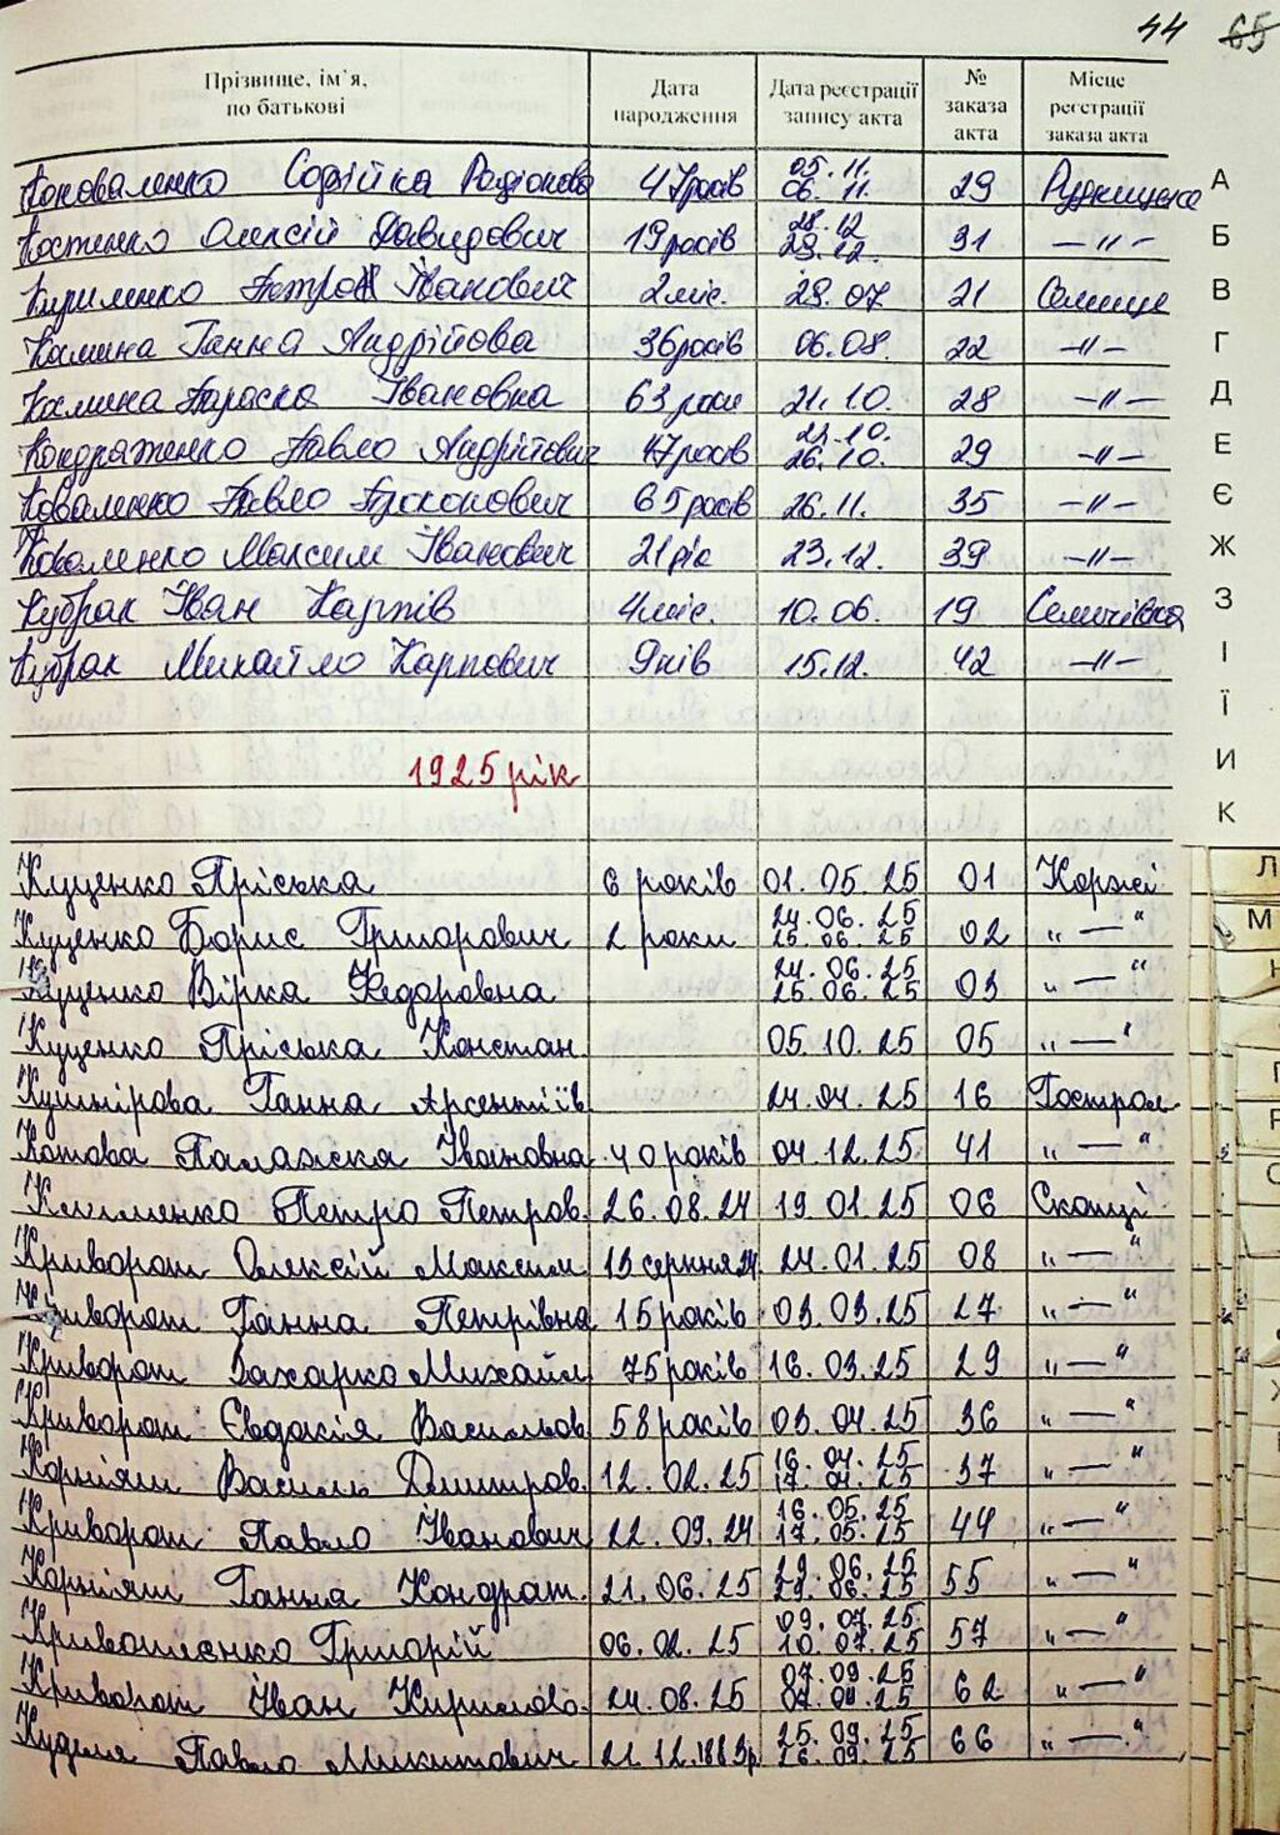 44 65
Прізвище, ім'я, по батькові Дата народження Дата реєстрації запису акта № заказа акта Місце реєстрації заказа акта
Коноваленко Софійка Радіонова 47 років 05.11. 06.11. 29 Рудницьке А
Костенко Олексій Давидович 19 років 28.12 29.12. 31 —〃— Б
Кириленко Петро Іванович 2 міс. 28.07 21 Селище В
Калина Ганна Андрійова 36 років 06.08. 22 —〃— Г
Калина Параска Івановна 63 роки 21.10. 28 —〃— Д
Кондраженко Павло Андрійович 47 років 25.10. 26.10. 29 —〃— Е
Коваленко Павло Прокопович 65 років 26.11. 35 —〃— Є
Коваленко Максим Іванович 21 рік 23.12. 39 —〃— Ж
Кубрак Іван Карпів 4 міс. 10.06. 19 Семичівка З
Кубрак Михайло Карпович 9 днів 15.12. 42 —〃— І
Ї
1925 рік И
К
Куценко Пріська 6 років 01.05.25 01 Коржі Л
Куценко Борис Григорович 2 роки 24.06.25 25.06.25 02 „—“ М
Куценко Вірка Федоровна 24.06.25 25.06.25 03 „—“
Куценко Пріська Констан. 05.10.25 05 „—“
Кушнірова Ганна Арсентіїв 24.04.25 16 Гострол
Котова Палажка Івановна 40 років 04.12.25 41 „—“
Клименко Петро Петров. 26.08.24 19.01.25 06 Скопці
Криворот Олексій Максим 13 серпня 24. 24.01.25 08 „—“
Криворот Ганна Петрівна 15 років 03.03.25 27 „—“
Криворот Захарко Михайл 75 років 16.03.25 29 „—“
Криворот Євдокія Васильов 58 років 03.04.25 36 „—“
Корніяш Василь Дмитров. 12.02.25 16.04.25 17.04.25 37 „—“
Криворот Павло Іванович 22.09.24 16.05.25 17.05.25 44 „—“
Корніяш Ганна Кондрат. 21.06.25 29.06.25 29.06.25 55 „—“
Кривошиєнко Григорій 06.02.25 09.07.25 10.07.25 57 „—“
Криворот Іван Кирилово. 24.08.25 07.09.25 62 „—“
Куделя Павло Микитович 21.12.1883р 25.09.25 26.09.25 66 „—“